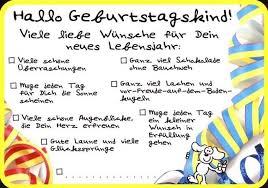 Hallo Geburtstagskind!
Viele liebe Wünsche für Dein
neues Lebensjahr:
Viele schöne
Überraschungen
Ganz viel Schokolade
ohne Bauchweh
Möge jeden Tag
für Dich die Sonne
scheinen
Ganz viel Lachen und
vor-Freude-auf-dem-Boden-
kugeln
Viele schöne Augenblicke,
die Dein Herz erfreuen
Möge jeden Tag
ein kleiner
Wunsch in
Erfüllung
gehen
Gute Laune und viele
Glückssprünge